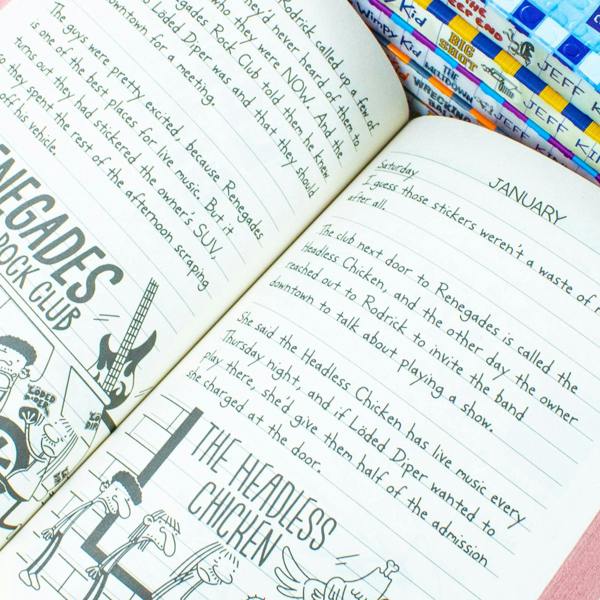 Rodrick called up a few of
they'd never heard of them to
Löded Diper
Renegades Rock Club told them he knew
who they were NOW. And the
was and that they should
downtown for a meeting.
The guys were pretty excited, because Renegades
is one of the best places for live music. But it
turns out they had stickered the owner's SUV,
so they spent the rest of the afternoon scraping
off his vehicle.
RENEGADES
ROCK CLUB
LÖDED
DIPER
JANUARY
Saturday
I guess those stickers weren't a waste of
after all.
The club next door to Renegades is called the
Headless Chicken, and the other day the owner
reached out to Rodrick to invite the band
downtown to talk about playing a show.
She said the Headless Chicken has live music every
Thursday night, and if Löded Diper wanted to
play there, she'd give them half of the admission
she charged at the door.
THE HEADLESS
CHICKEN
THE
DEEP END
JEFF
Kid
BIG
SHOT
JEFF KI
Wimpy Kid
THE
MELTDOWN
JEFF KIN
WRECKING
BALL